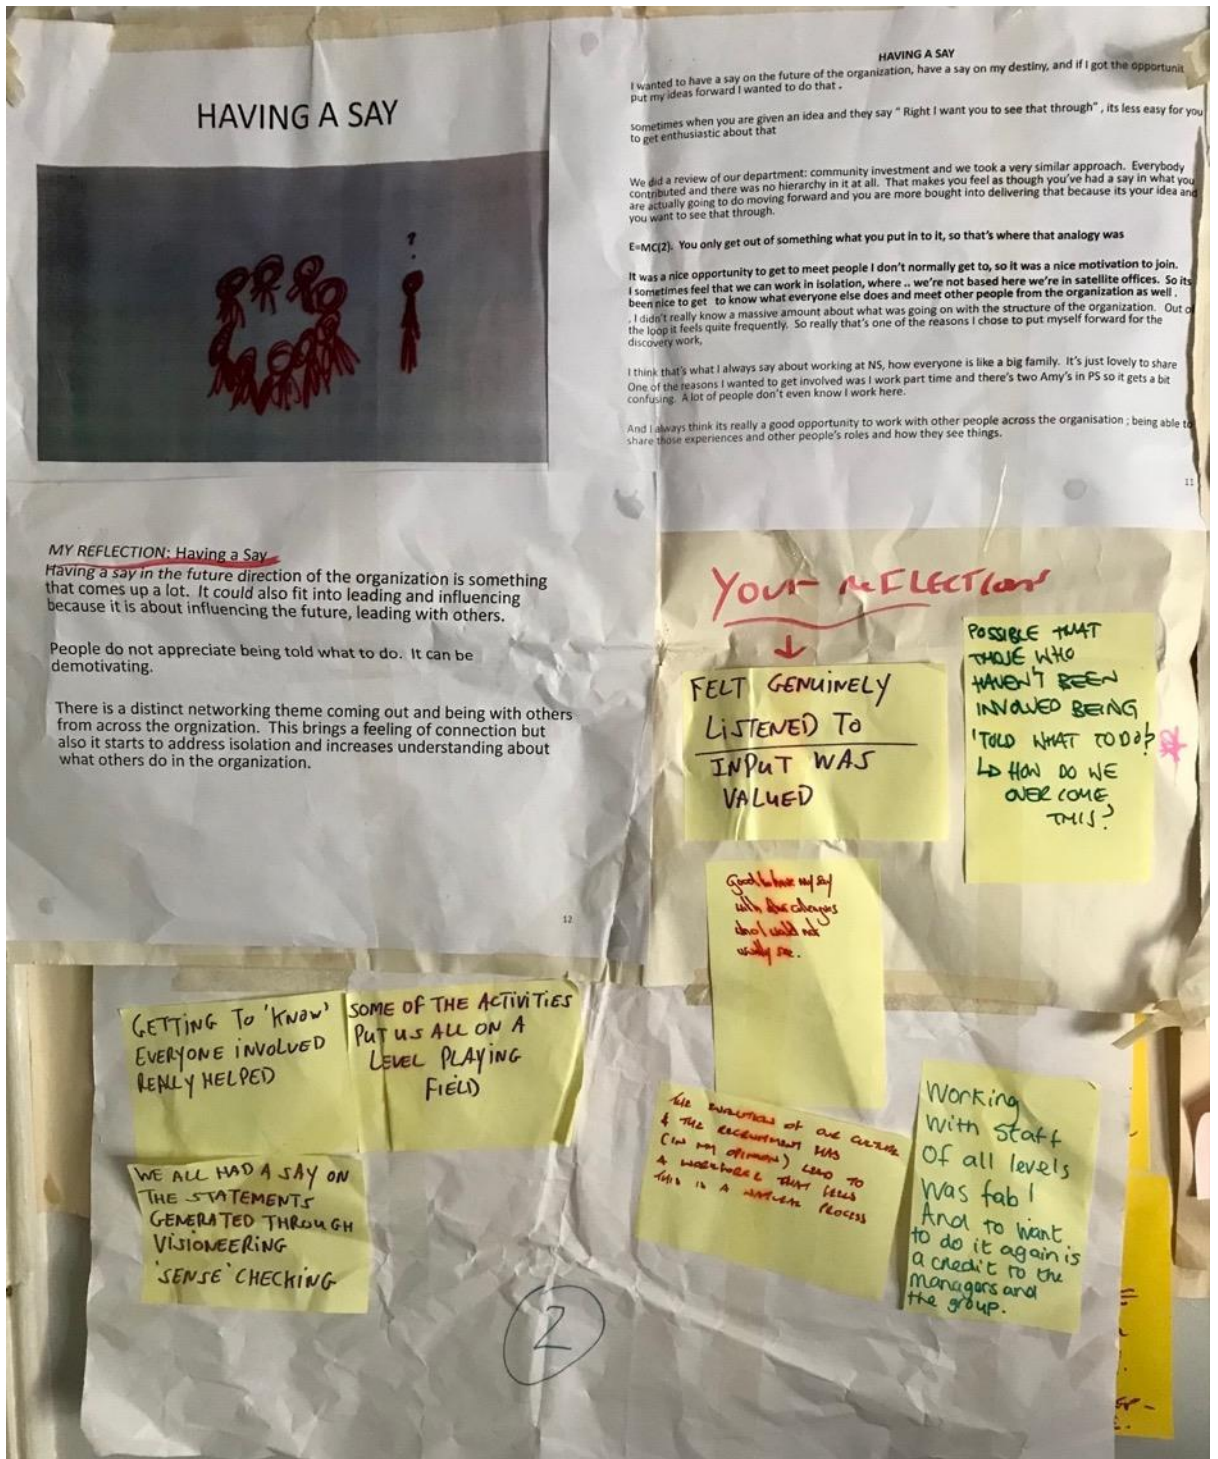 HAVING A SAY
?
HAVING A SAY
I wanted to have a say on the future of the organization, have a say on my destiny, and if I got the opportunit
put my ideas forward I wanted to do that .
sometimes when you are given an idea and they say " Right I want you to see that through" , its less easy for you
to get enthusiastic about that
We did a review of our department: community investment and we took a very similar approach. Everybody
contributed and there was no hierarchy in it at all. That makes you feel as though you've had a say in what you
are actually going to do moving forward and you are more bought into delivering that because its your idea and
you want to see that through.
E=MC(2). You only get out of something what you put in to it, so that's where that analogy was
It was a nice opportunity to get to meet people I don't normally get to, so it was a nice motivation to join.
I sometimes feel that we can work in isolation, where .. we're not based here we're in satellite offices. So its
been nice to get to know what everyone else does and meet other people from the organization as well .
. I didn't really know a massive amount about what was going on with the structure of the organization. Out of
the loop it feels quite frequently. So really that's one of the reasons I chose to put myself forward for the
discovery work,
I think that's what I always say about working at NS, how everyone is like a big family. It's just lovely to share
One of the reasons I wanted to get involved was I work part time and there's two Amy's in PS so it gets a bit
confusing. A lot of people don't even know I work here.
And I always think its really a good opportunity to work with other people across the organisation ; being able to
share those experiences and other people's roles and how they see things.
11
MY REFLECTION: Having a Say
Having a say in the future direction of the organization is something
that comes up a lot. It could also fit into leading and influencing
because it is about influencing the future, leading with others.
People do not appreciate being told what to do. It can be
demotivating.
There is a distinct networking theme coming out and being with others
from across the orgnization. This brings a feeling of connection but
also it starts to address isolation and increases understanding about
what others do in the organization.
12
YOUR REFLECTION
FELT GENUINELY
LISTENED TO
INPUT WAS
VALUED
POSSIBLE THAT
THOSE WHO
HAVEN'T BEEN
INVOLVED BEING
'TOLD WHAT TO DO?
HOW DO WE
OVER COME
THIS?
Good to have my say
with colleagues
who I would not
usually see.
GETTING TO 'KNOW'
EVERYONE INVOLVED
REALLY HELPED
SOME OF THE ACTIVITIES
PUT US ALL ON A
LEVEL PLAYING
FIELD
WE ALL HAD A SAY ON
THE STATEMENTS
GENERATED THROUGH
VISIONEERING
'SENSE' CHECKING
THE EVOLUTION OF OUR CULTURE
& THE RECRUITMENT HAS
(IN MY OPINION) LEAD TO
A WORKFORCE THAT FEELS
THIS IS A NATURAL PROCESS
Working
With staff
Of all levels
Was fab!
And to want
to do it again is
a credit to the
managers and
the group.
2